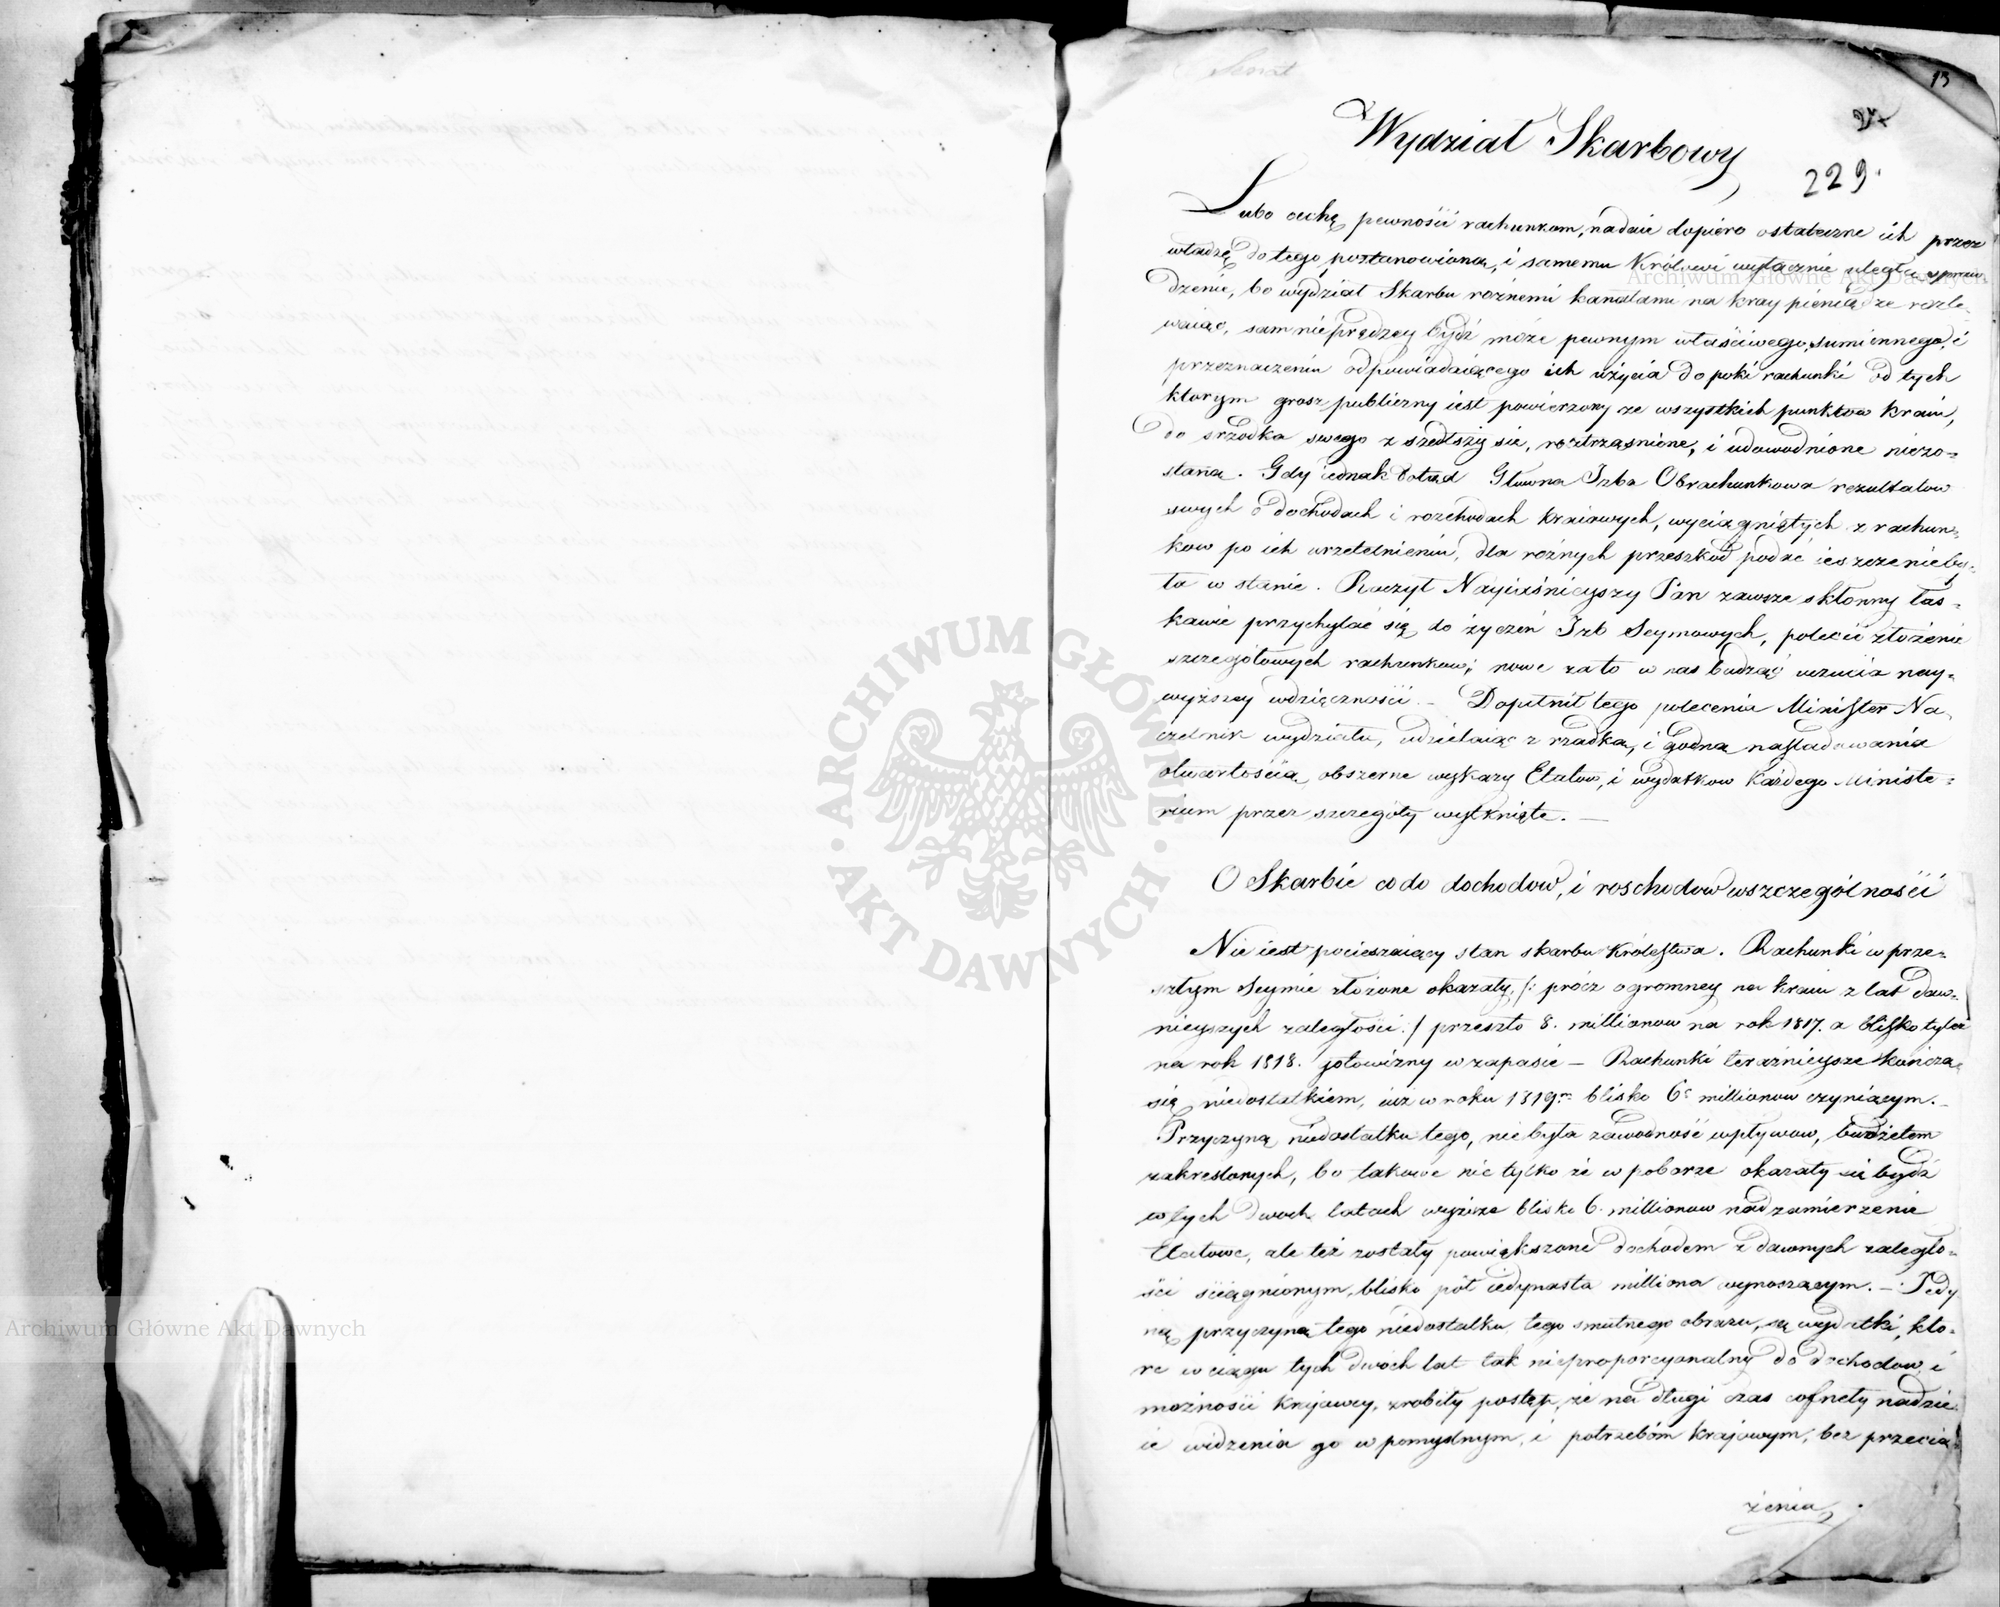 Senat
13
229.
Wydział Skarbowy
Lubo cechę pewności rachunkom, nadaie dopiero ostateczne ich przez
władzę do tego postanowioną, i samemu Królowi wyłącznie uległą spraw-
dzenie, bo wydział Skarbu rożnemi kanałami na kray pieniądze rozle-
waiąc, sam nieprędzey bydź może pewnym właściwego, sumiennego, i
przeznaczeniu odpowiadaiącego ich użycia dopoki rachunki od tych
ktorym grosz publiczny iest powierzony ze wszystkich punktow kraiu,
do srzodka swego zszedłszy się, roztrząsnione, i udowodnione niezo-
staną. Gdy iednak dotąd Głowna Izba Obrachunkowa rezultatow
swych o dochodach i rozchodach kraiowych, wyciągniętych z rachun-
kow po ich urzetelnieniu, dla rożnych przeszkod podać ieszcze nieby-
ła w stanie. Raczył Nayiaśnieyszy Pan zawsze skłonny łas-
kawie przychylać się do życzeń Izb Seymowych, polecić złożenie
szczegółowych rachunkow; nowe za to w nas budząc uczucia nay-
wyższey wdzięczności. — Dopełnił tego polecenia Minister Na-
czelnik wydziału, udzielaiąc z rzadką, i godną nasladowania
otwartością, obszerne wykazy Etatow, i wydatkow każdego Ministe-
rium przez szczegóły wytknięte. —
O Skarbie co do dochodow, i roschodow wszczególności
Nie iest pocieszaiący stan skarbu Królestwa. Rachunki w prze-
szłym Seymie złożone okazały, /: prócz ogromney na kraiu z lat daw-
nieyszych zaległości :/ przeszło 8. millionow na rok 1817. a blisko tyleż
na rok 1818. gotowizny w zapasie — Rachunki teraźnieysze kończą
się niedostatkiem, iuż w roku 1819m blisko 6c millionow czyniącym. —
Przyczyną niedostatku tego, nie była zawodność wpływow, budżetem
zakreslonych, bo takowe nie tylko że w poborze okazały się bydź
w tych dwoch latach wyższe blisko 6. millionow nad zamierzenie
Etatowe, ale też zostały powiększone dochodem z dawnych zaległo-
ści sciągnionym, blisko pół iedynasta milliona wynoszącym. — Jedy
ną przyczyną tego niedostatku, tego smutnego obrazu, są wydatki, kto-
re w ciągu tych dwóch lat tak nieproporcyonalny do dochodow, i
możności krajowey, zrobiły postęp, że na długi czas cofnęły nadzie-
ię widzenia go w pomyslnym, i potrzebom krajowym, bez przecią
żenia
Archiwum Główne Akt Dawnych
Archiwum Główne Akt Dawnych
ARCHIWUM GŁÓWNE AKT DAWNYCH